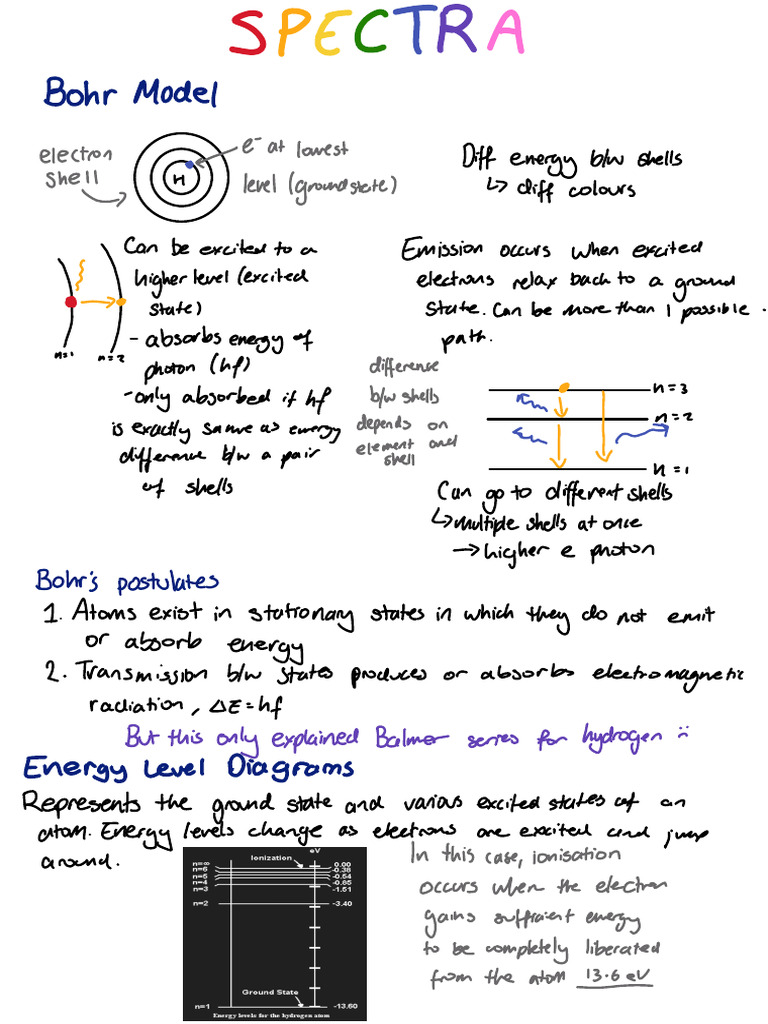 SPECTRA
Bohr Model
electron
shell
H
e⁻ at lowest
level (ground state)
Diff energy b/w shells
↳ diff colours
n=1
n=2
Can be excited to a
higher level (excited
state)
- absorbs energy of
photon (hf)
- only absorbed if hf
is exactly same as energy
difference b/w a pair
of shells
Emission occurs when excited
electrons relax back to a ground
state. Can be more than 1 possible
path.
difference
b/w shells
depends on
element and
shell
n=3
n=2
n=1
Can go to different shells
↳ multiple shells at once
→ higher e photon
Bohr's postulates
1. Atoms exist in stationary states in which they do not emit
or absorb energy
2. Transmission b/w states produces or absorbs electromagnetic
radiation, ΔE=hf
But this only explained Balmer series for hydrogen :(
Energy Level Diagrams
Represents the ground state and various excited states of an
atom. Energy levels change as electrons are excited and jump
around.
eV
Ionization
n=∞ 0.00
n=6 -0.38
n=5 -0.54
n=4 -0.85
n=3 -1.51
n=2 -3.40
Ground State
n=1 -13.60
Energy levels for the hydrogen atom
In this case, ionisation
occurs when the electron
gains sufficient energy
to be completely liberated
from the atom 13.6 eV